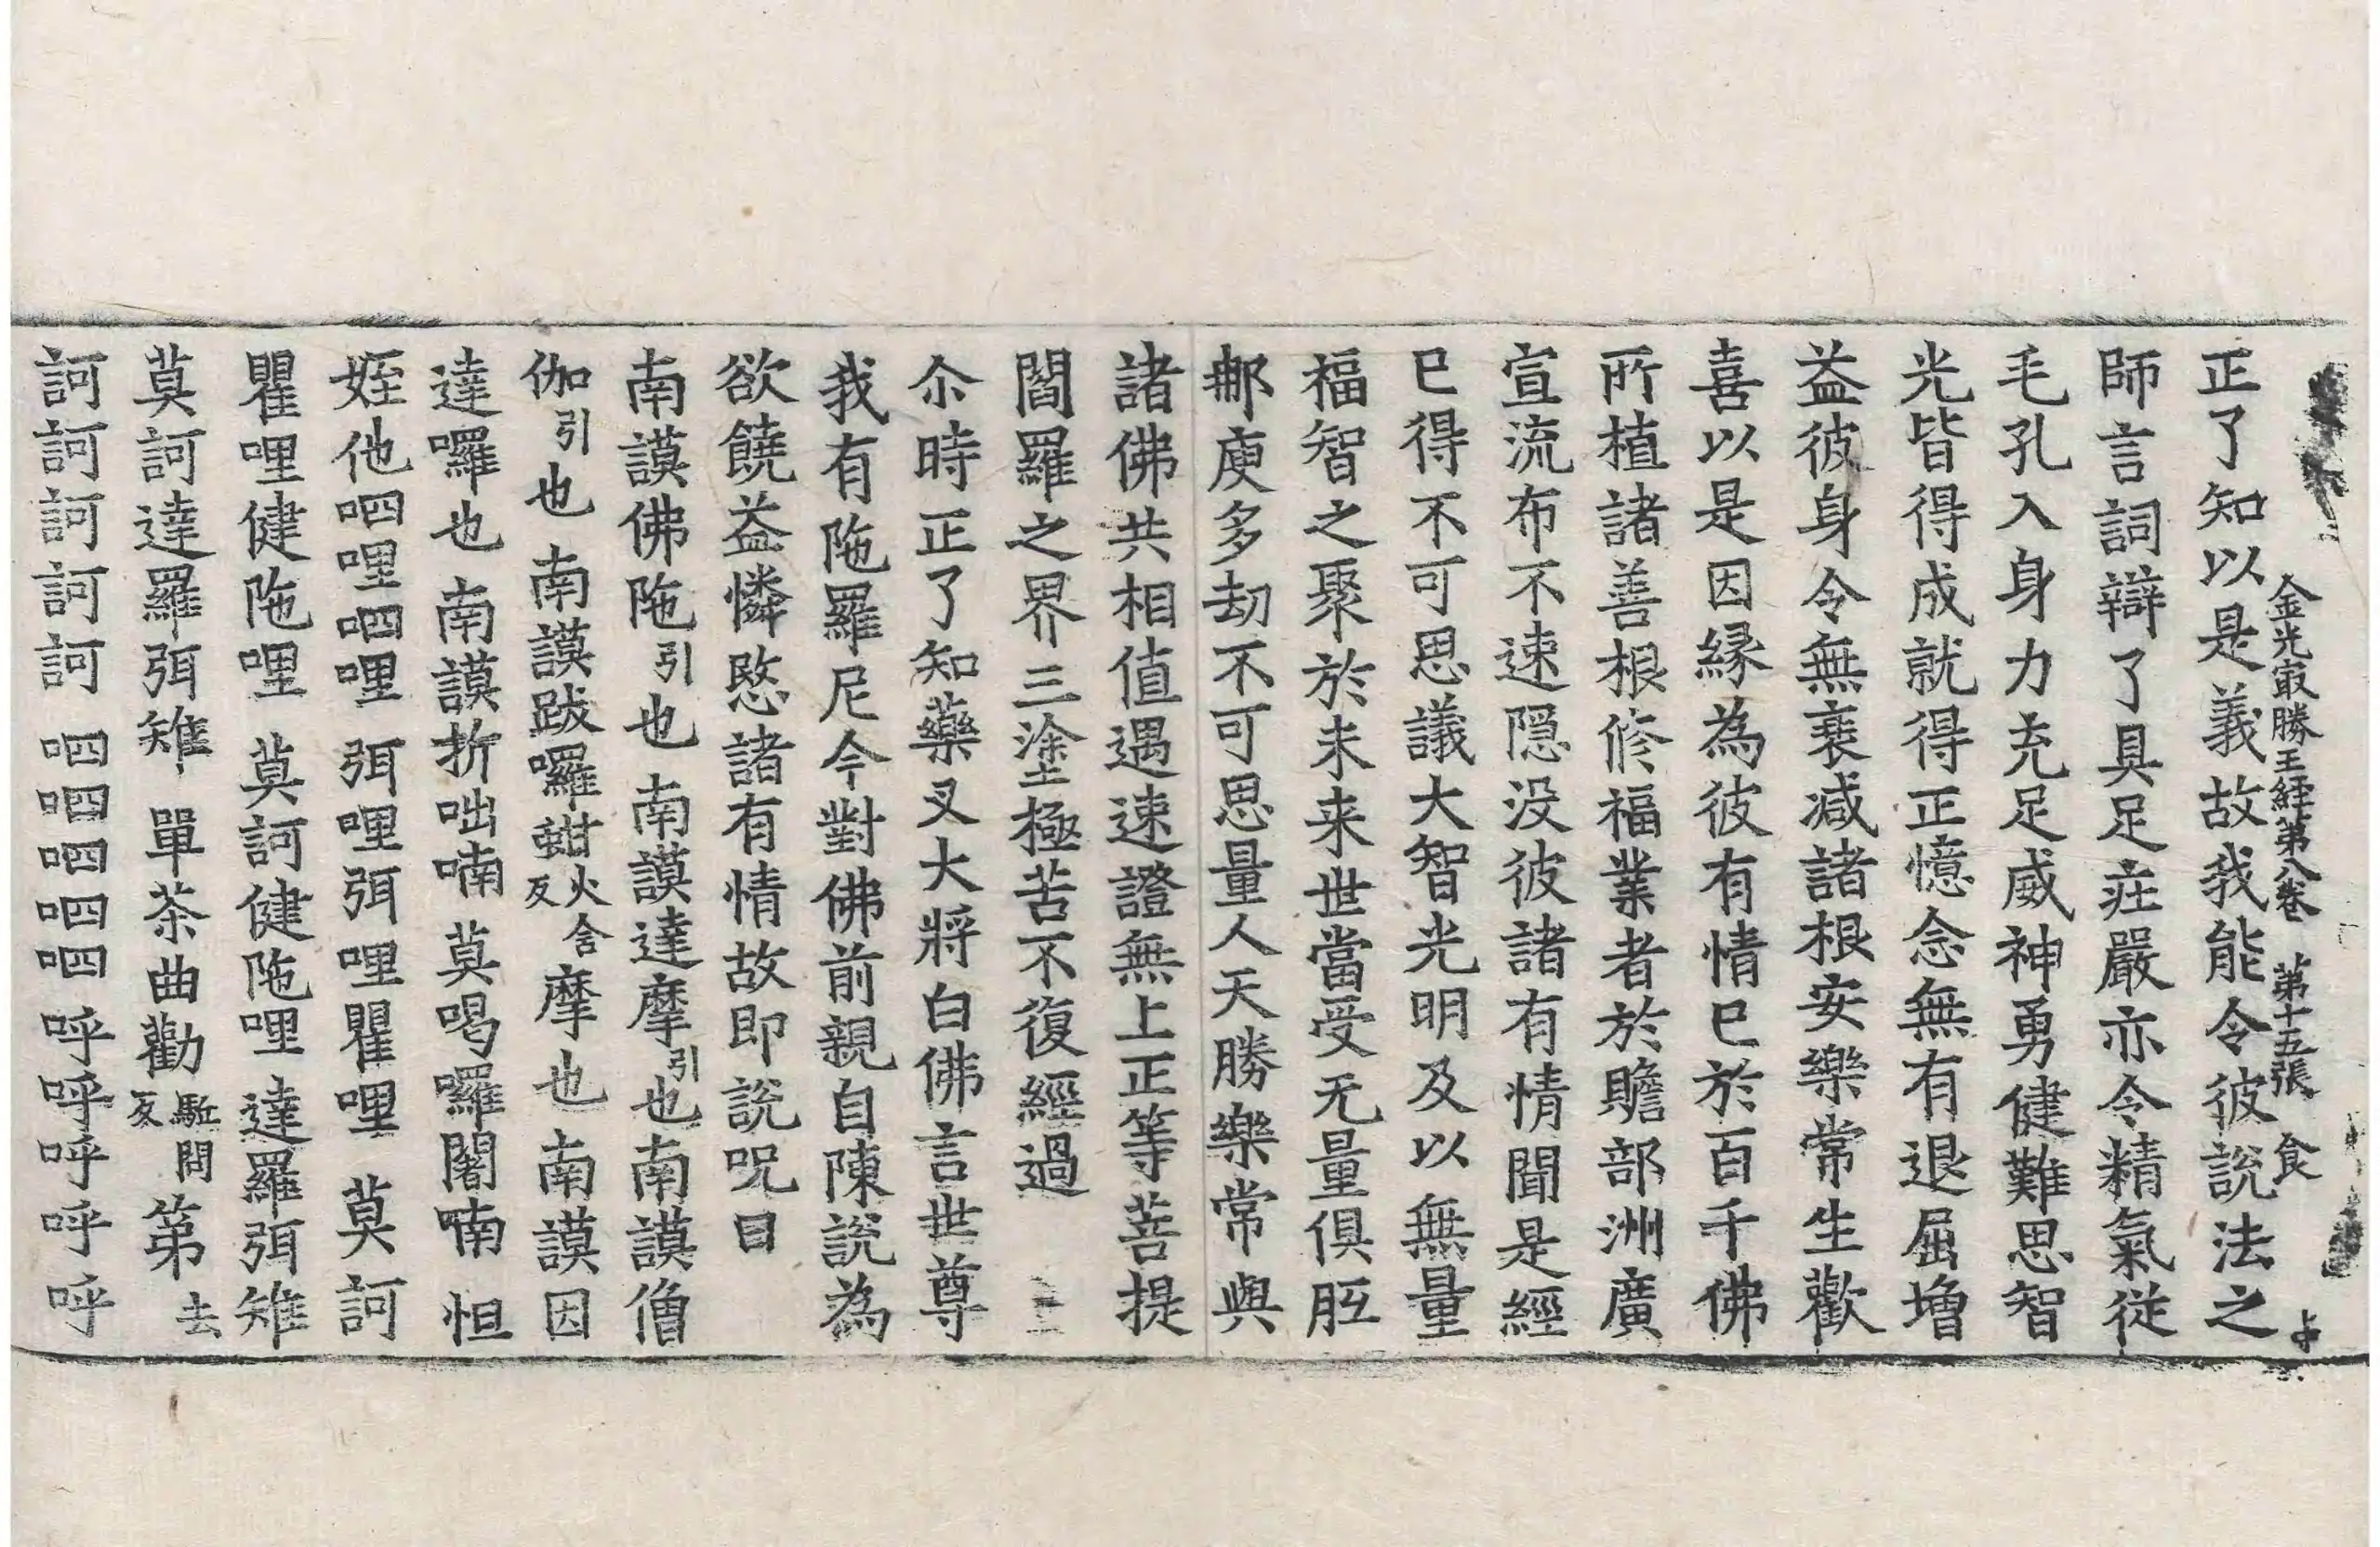 金光㝡勝王経第八卷　第十五張　食
正了知以是義故我能令彼說法之
師言詞辯了具足莊嚴亦令精氣從
毛孔入身力充足威神勇健難思智
光皆得成就得正憶念無有退屈增
益彼身令無衰减諸根安樂常生歡
喜以是因緣為彼有情已於百千佛
所植諸善根修福業者於贍部洲廣
宣流布不速隱没彼諸有情聞是經
已得不可思議大智光明及以無量
福智之聚於未来世當受无量俱胝
那庾多劫不可思量人天勝樂常與
諸佛共相值遇速證無上正等菩提
閻羅之界三塗極苦不復經過
尒時正了知藥叉大將白佛言世尊
我有陁羅尼今對佛前親自陳說為
欲饒益憐愍諸有情故即說呪曰
南謨佛陁引也　南謨達摩引也南謨僧
伽引也　南謨跋囉蚶火含反摩也　南謨因
達囉也　南謨折咄喃　莫喝囉闍喃　怛
姪他呬哩呬哩　弭哩弭哩瞿哩　莫訶
瞿哩健陁哩　莫訶健陁哩　達羅弭雉
莫訶達羅弭雉　單荼曲勸駈問反第去
訶訶訶訶訶　呬呬呬呬呬　呼呼呼呼呼